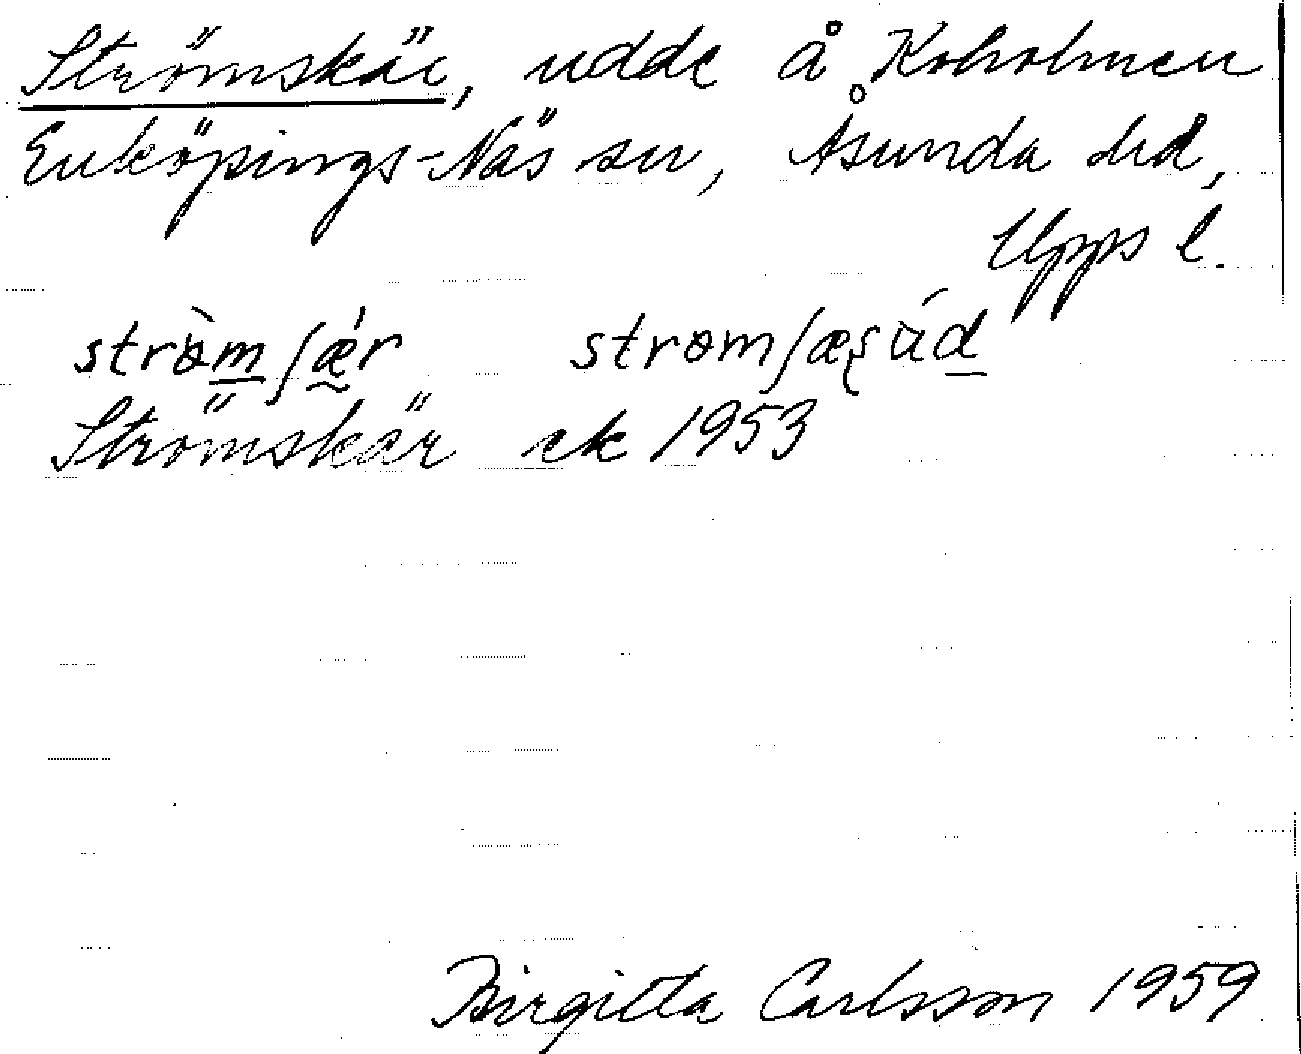 Strömskär, udde å Koholmen
Enköpings-Näs sn, Åsunda hd,
Upps l.
strømʃæ̀r strømʃæʂúd
Strömskär ek 1953
Birgitta Carlsson 1959